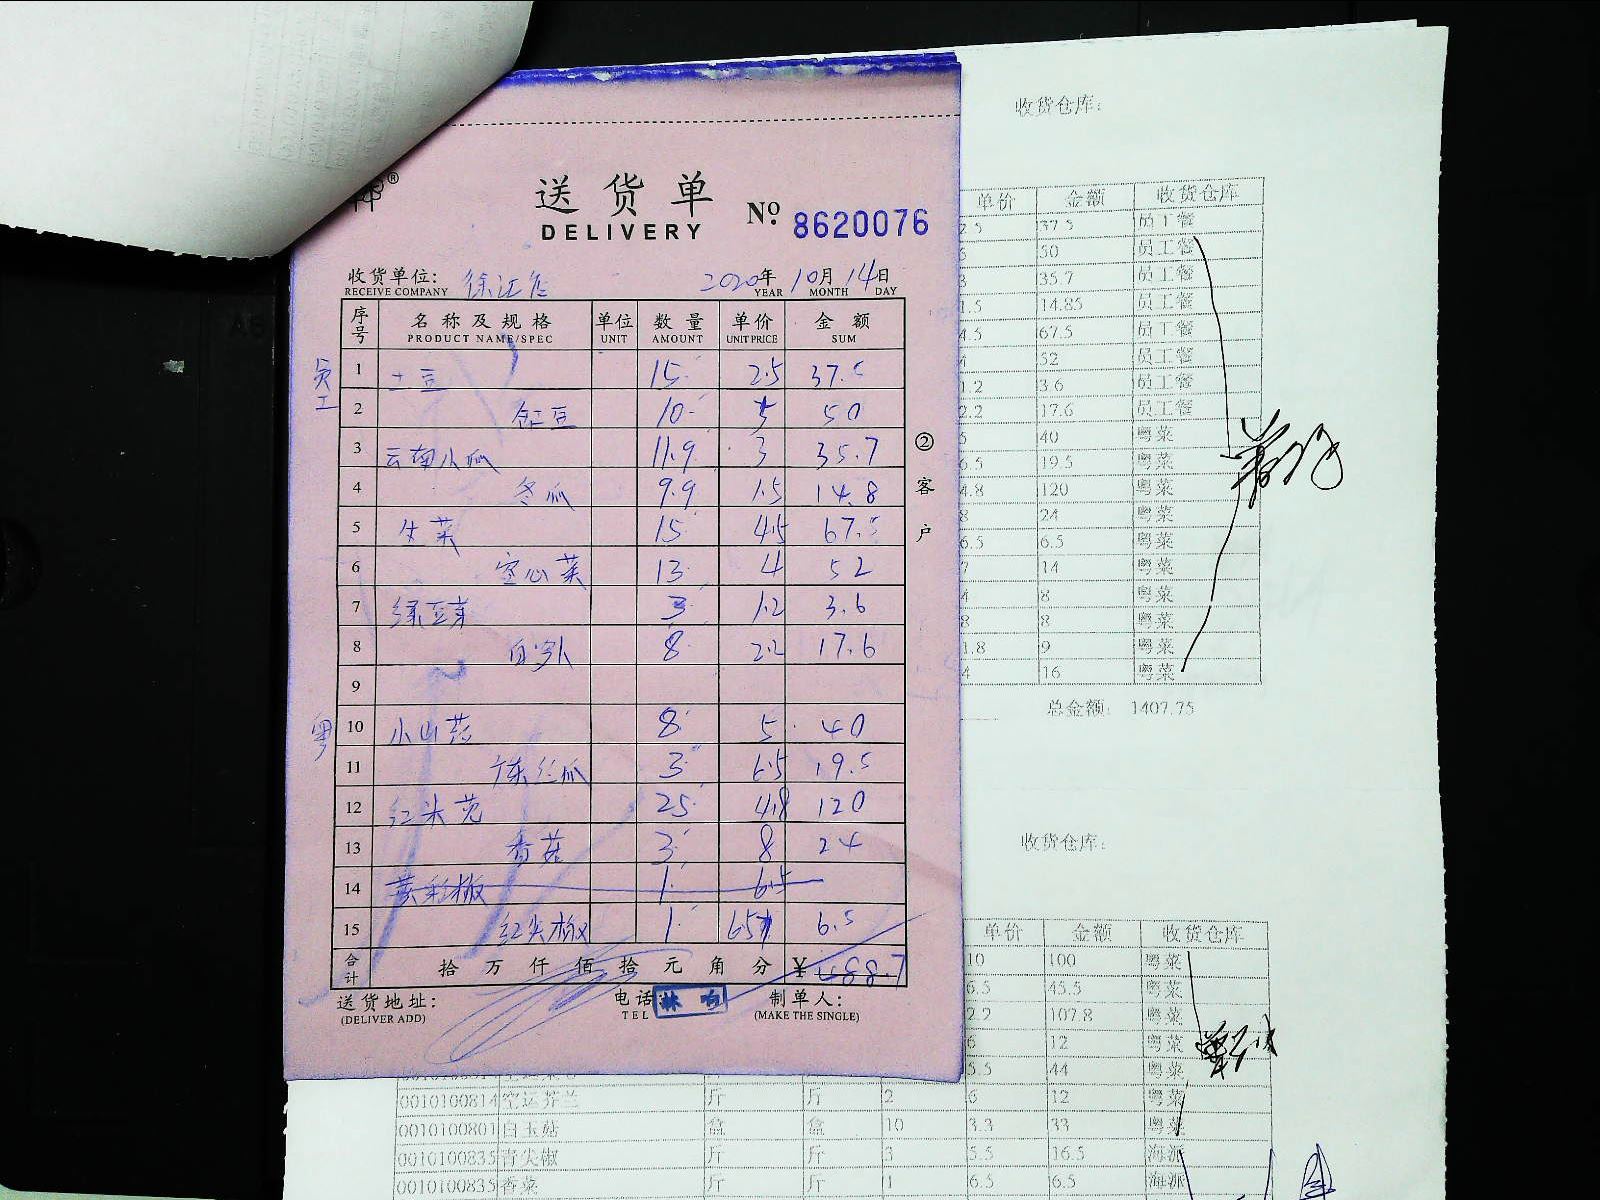 收货仓库:
送货单
DELIVERY
No. 8620076
收货单位: 徐汇店 2020年10月14日
RECEIVE COMPANY YEAR MONTH DAY
序号 名称及规格 单位 数量 单价 金额
PRODUCT NAME/SPEC UNIT AMOUNT UNIT PRICE SUM
员工
1 土豆 15 2.5 37.5
2 豇豆 10 5 50
3 云南小瓜 11.9 3 35.7
4 冬瓜 9.9 1.5 14.8
5 生菜 15 4.5 67.5
6 空心菜 13 4 52
7 绿豆芽 3 1.2 3.6
8 白萝卜 8 2.2 17.6
9
粤
10 小山菇 8 5 40
11 广东丝瓜 3 6.5 19.5
12 红米苋 25 4.8 120
13 香菇 3 8 24
14 黄彩椒 1 6.5
15 红尖椒 1 6.5 6.5
合计 拾 万 仟 佰 拾 元 角 分 ¥ 488.7
送货地址: 电话: 制单人:
(DELIVER ADD) TEL (MAKE THE SINGLE)
②客户
单价 金额 收货仓库
2.5 37.5 员工餐
5 50 员工餐
3 35.7 员工餐
1.5 14.85 员工餐
4.5 67.5 员工餐
4 52 员工餐
1.2 3.6 员工餐
2.2 17.6 员工餐
5 40 粤菜
6.5 19.5 粤菜
4.8 120 粤菜
8 24 粤菜
6.5 6.5 粤菜
7 14 粤菜
4 8 粤菜
8 8 粤菜
1.8 9 粤菜
4 16 粤菜
总金额: 1407.75
收货仓库:
单价 金额 收货仓库
10 100 粤菜
6.5 45.5 粤菜
2.2 107.8 粤菜
6 12 粤菜
5.5 44 粤菜
0010100814 空运芥兰 斤 斤 2 6 12 粤菜
0010100801 白玉菇 盒 盒 10 3.3 33 粤菜
0010100835 青尖椒 斤 斤 3 5.5 16.5 海派
0010100835 香菜 斤 斤 1 6.5 6.5 海派